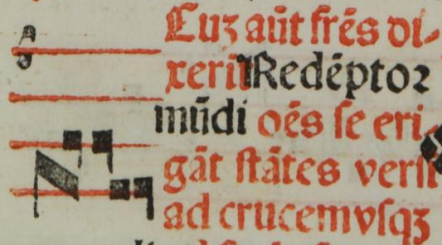 Cuʒ aūt frēs di-
xerīt Redēptoꝛ
mūdi oēs se eri-
gāt stātes versꝰ
ad crucem vsqʒ